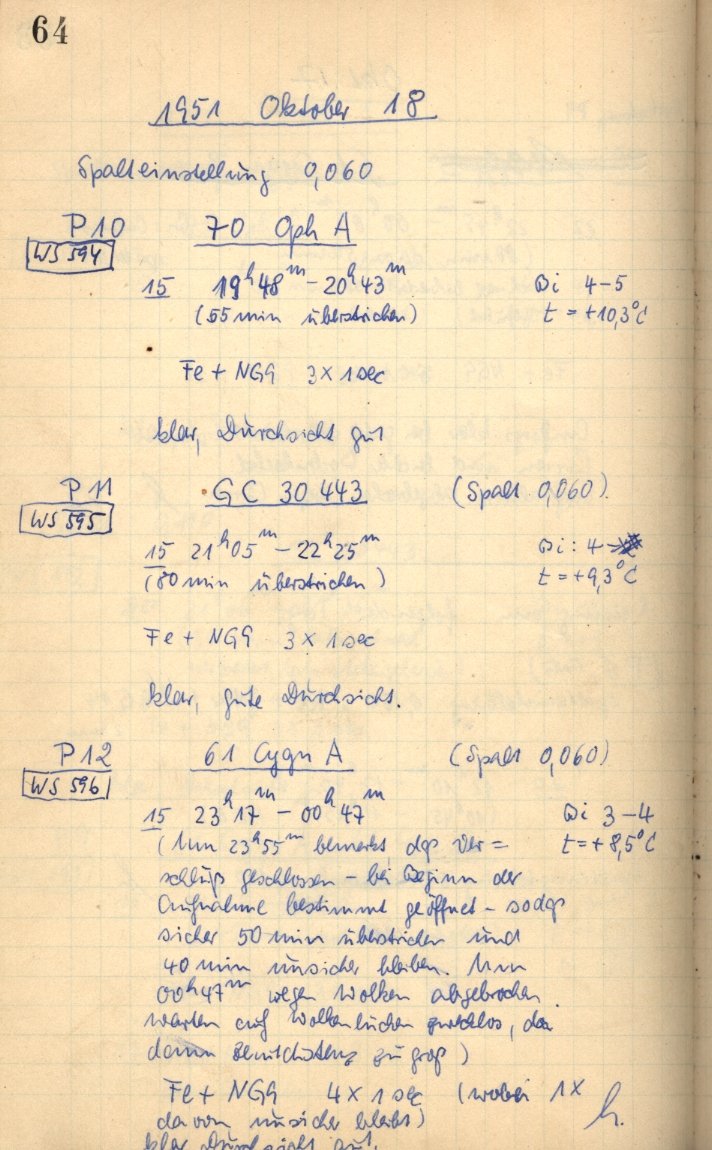 64
1951 Oktober 18
Spalteinstellung 0,060
P10 70 Oph A
WS 594
15 19h48m – 20h43m Bi 4–5
(55 min überstrichen) t = +10,3°C
Fe + NGG 3 x 1 sec
klar, Durchsicht gut
P11 GC 30 443 (Spalt 0,060).
WS 595
15 21h05m – 22h25m Bi: 4
(80 min überstrichen) t = +9,3°C
Fe + NGG 3 x 1 sec
klar, gute Durchsicht.
P12 61 Cygn A (Spalt 0,060)
WS 596
15 23h17m – 00h47m Bi 3–4
(Um 23h55m bemerkt, daß Ver= t = +8,5°C
schluß geschlossen – bei Beginn der
Aufnahme bestimmt geöffnet – sodaß
sicher 50 min überstrichen und
40 min unsicher bleiben. Um
00h47m wegen Wolken abgebrochen.
warten auf Wolkenlücken zwecklos, da
dann Zenitdistanz zu groß)
Fe + NGG 4 x 1 sec (wobei 1x
davon unsicher bleibt) h.
klar Durchsicht gut.